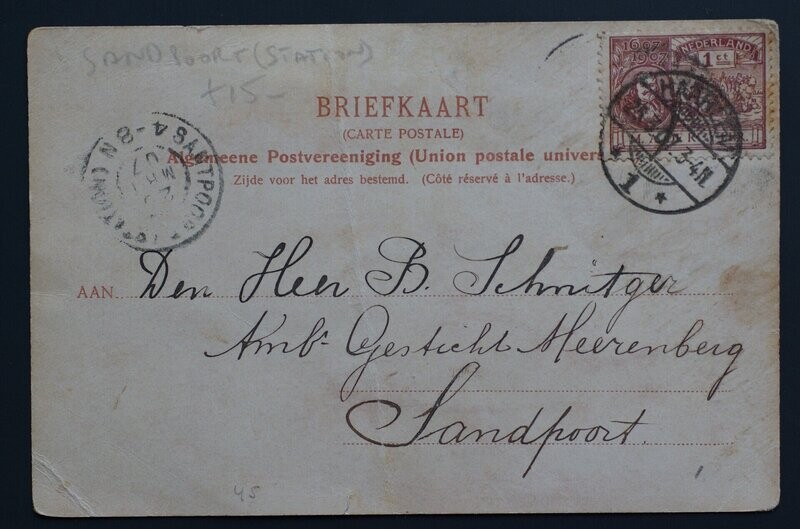 SANDPOORT (STATION)
+15-
1607 NEDERLAND
1907 1 ct
BRIEFKAART
(CARTE POSTALE)
Algemeene Postvereeniging (Union postale univers
Zijde voor het adres bestemd. (Côté réservé à l'adresse.)
SANTPOORT (STATION) 4-8N
3-4N
1
AAN Den Heer B. Schnitger
Amb. Gesticht Meerenberg
Sandpoort.
45